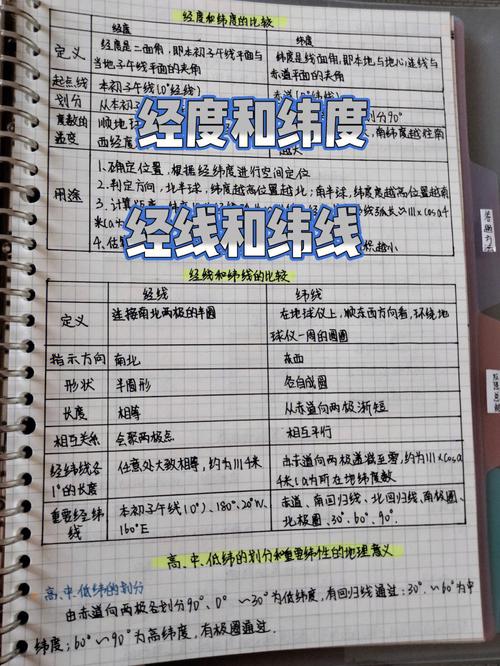 经度和纬度的比较
经度 纬度
定义 经度是二面角,即本初子午线平面与 纬度是线面角,即本地与地心连线与
当地子午线平面的夹角 赤道平面的夹角
起点线 本初子午线(0°经线)
划分 从本初子午 90°
度数的 顺地球 南纬度越往南
温度 西经度 越大
经度和纬度
用途 1.确定位置,根据经纬度进行空间定位
2.判定方向,北半球,纬度越高位置越北;南半球,纬度越高位置越南
3.计算距 ≈111×cosa4
4.估 积越小
经线和纬线
经线和纬线的比较
经线 纬线
定义 连接南北两极的半圆 在地球仪上,顺东西方向看,环绕地
球仪一周的圆圈
指示方向 南北 东西
形状 半圆形 各自成圆
长度 相等 从赤道向两极渐短
相互关系 会聚两极点 相互平行
经纬线各 任意处大致相等,约为111千米 由赤道向两极递减至零,约为111×cosa千
1°的长度 米(a为所在地纬度数
重要经纬 本初子午线(0°)、180°、20°W、 赤道、南回归线、北回归线、南极圈、
线 160°E 北极圈、30°、60°、90°.
高、中、低纬的划分和重要纬线的地理意义
高、中、低纬的划分
由赤道向两极各划分90°、0°~30°为低纬度,有回归线通过;30°~60°为中
纬度;60°~90°为高纬度,有极圈通过.